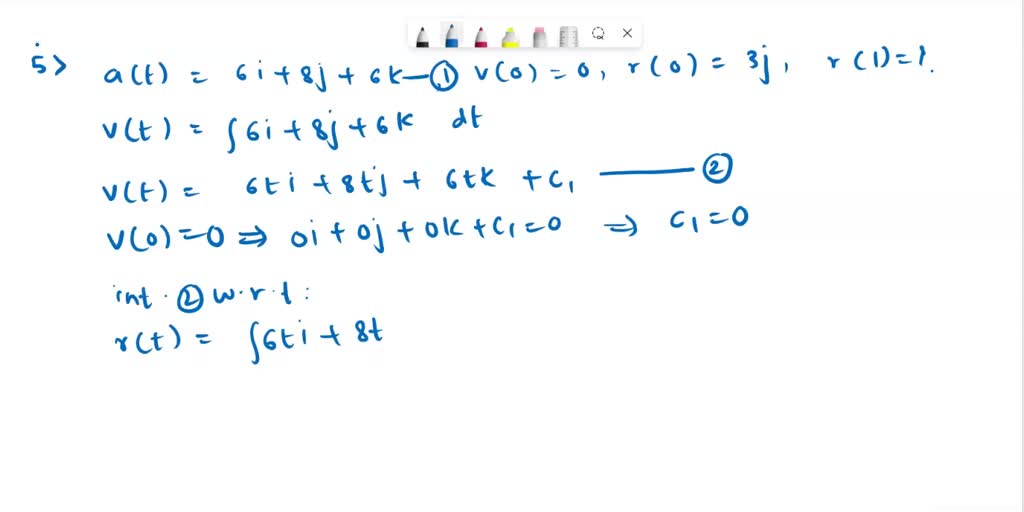 5> a(t) = 6i + 8j + 6k —① v(0) = 0, r(0) = 3j, r(1) = ?.
v(t) = ∫6i + 8j + 6k dt
v(t) = 6ti + 8tj + 6tk + c₁ —— ②
v(0) = 0 ⇒ 0i + 0j + 0k + c₁ = 0 ⇒ c₁ = 0
int. ② w.r.t:
r(t) = ∫6ti + 8t